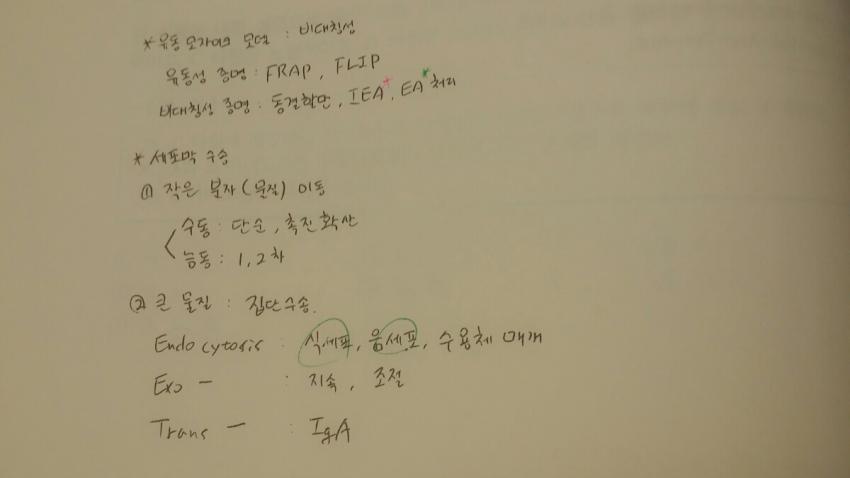 * 유동 모자이크 모델 : 비대칭성
유동성 증명 : FRAP, FLIP
비대칭성 증명 : 동결할단, IEA*, EA* 처리
* 세포막 수송
① 작은 분자(물질) 이동
수동 : 단순, 촉진확산
능동 : 1, 2차
② 큰 물질 : 집단수송.
Endocytosis : 식세포, 음세포, 수용체 매개
Exo — : 지속, 조절
Trans — : IgA